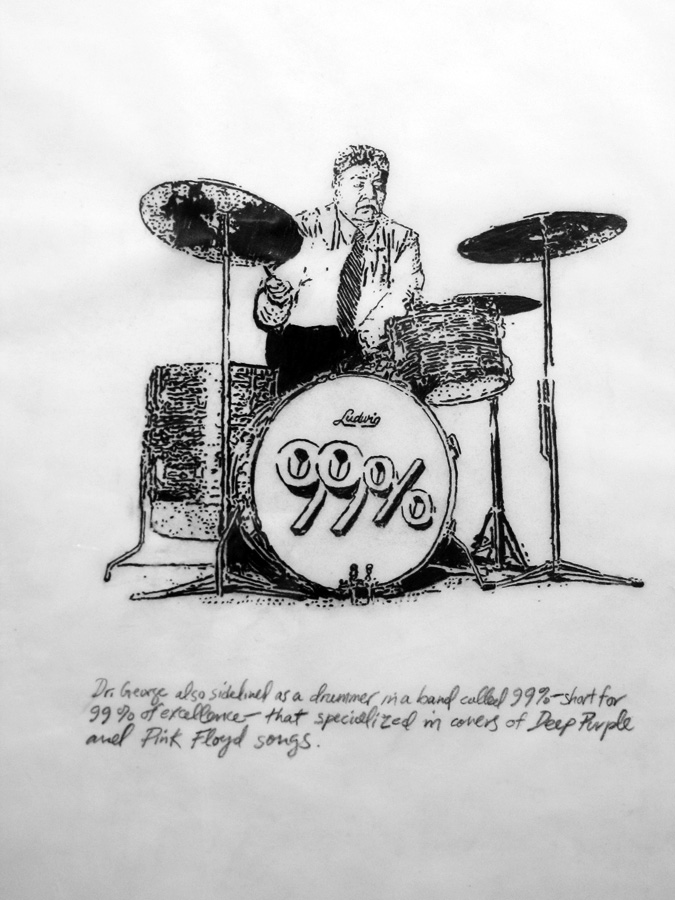 Ludwig
99%
Dr. George also sidelined as a drummer in a band called 99%-short for
99% of excellence- that specialized in covers of Deep Purple
and Pink Floyd songs.